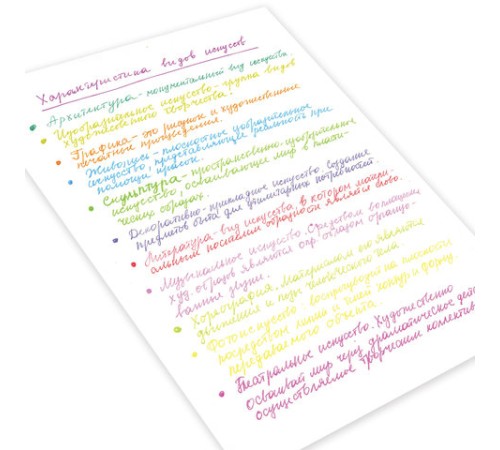 Характеристика видов искусств
Архитектура - монументальный вид искусства.
Изобразительное искусство - группа видов
художественного творчества.
Графика - это рисунок и художественные
печатные произведения.
Живопись - плоскостное изобразительное
искусство, представляющее реальность при
помощи красок.
Скульптура - пространственно-изобразительное
искусство, осваивающее мир в пласти-
ческих образах.
Декоративно-прикладное искусство. Создание
предметов быта для утилитарных потребностей.
Литература - вид искусства, в котором матери-
альным носителем образности является слово.
Музыкальное искусство. Средством воплощения
худ. образов является опр. образом организо-
ванные звуки.
Хореография. Материалом ею являются
движения и позы человеческого тела.
Фотоискусство воспроизводит на плоскости
посредством линии и тени контур и форму
передаваемого объекта.
Театральное искусство. Художественно
осваивает мир через драматическое дейст
осуществляемое творческим коллектив